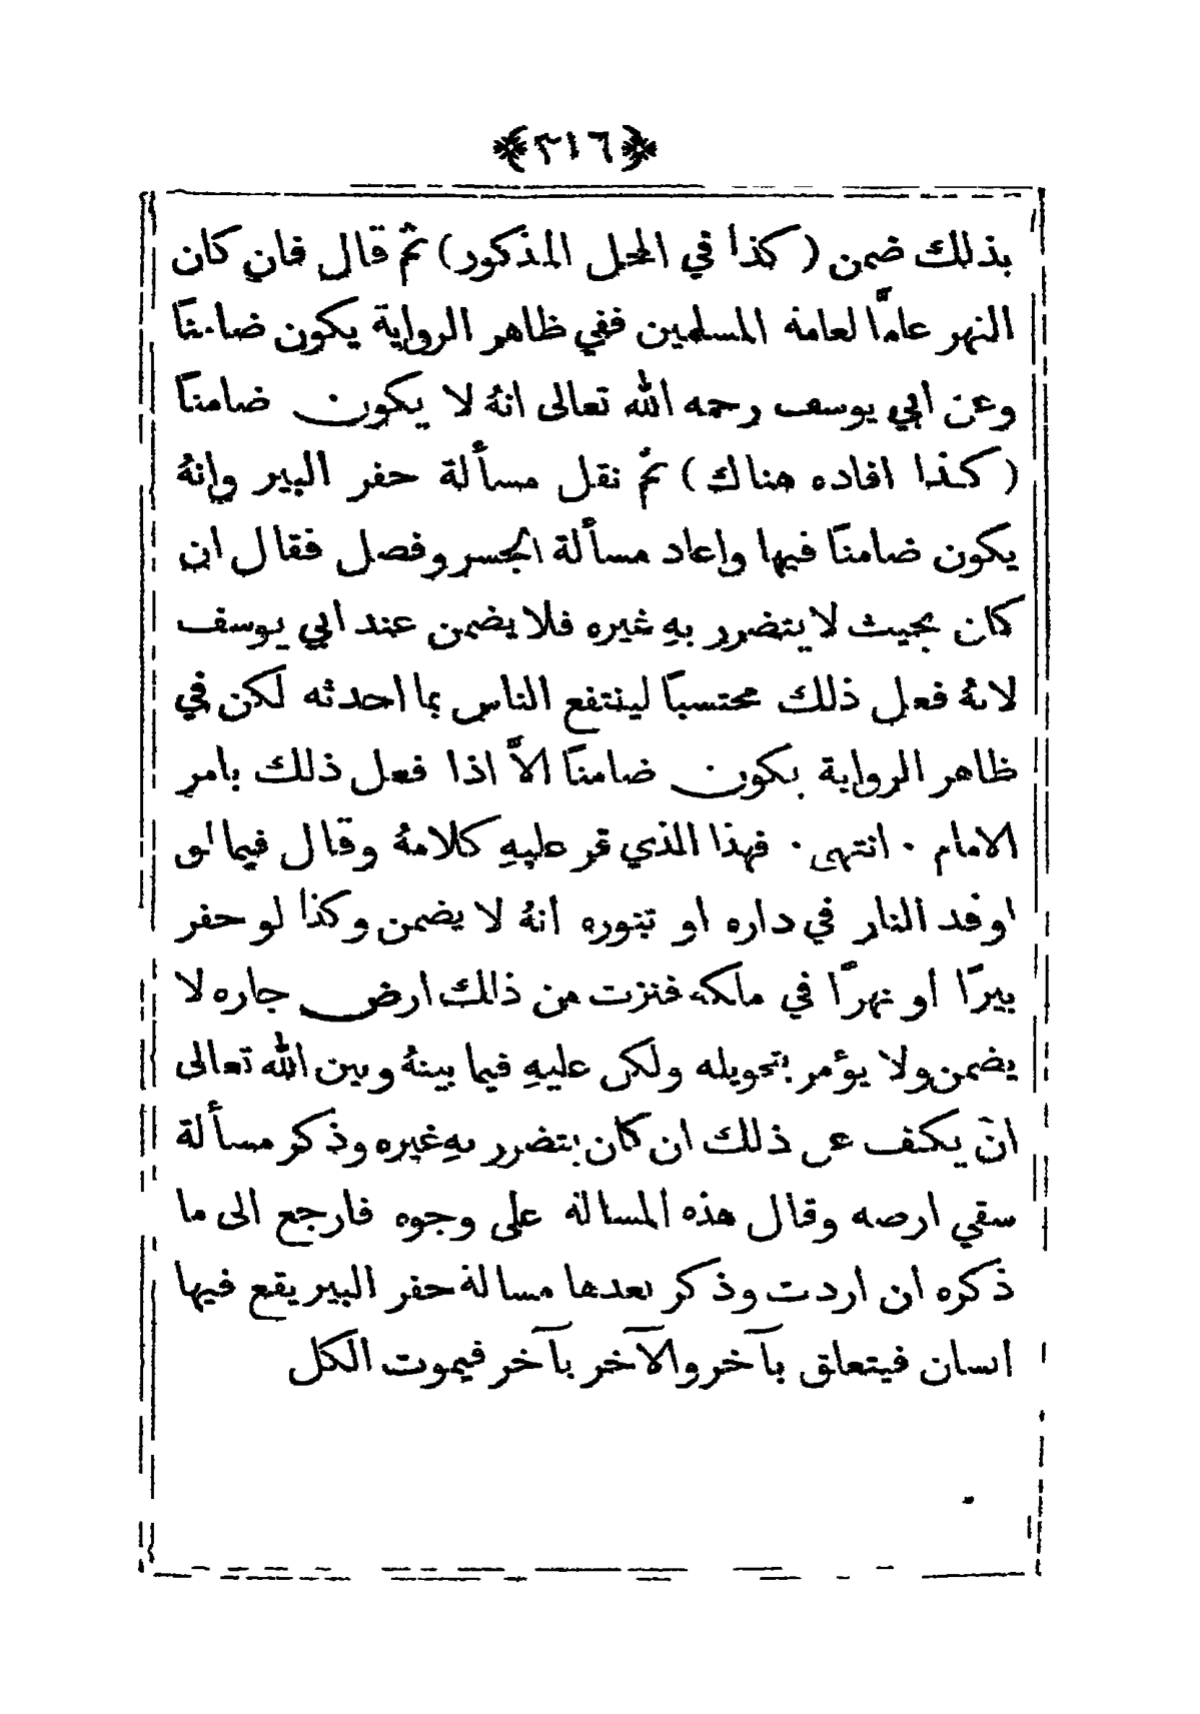 ﴿٣١٦﴾
بذلك ضمن (كذا في المحل المذكور) ثم قال فان كان
النهر عامًّا لعامة المسلمين ففي ظاهر الرواية يكون ضامنًا
وعن ابي يوسف رحمه الله تعالى انهُ لا يكون ضامنًا
(كذا افاده هناك) ثم نقل مسألة حفر البير وانهُ
يكون ضامنًا فيها واعاد مسألة الجسر وفصل فقال ان
كان بحيث لا يتضرر بهِ غيره فلا يضمن عند ابي يوسف
لانهُ فعل ذلك محتسبًا لينتفع الناس بما احدثه لكن في
ظاهر الرواية يكون ضامنًا الاَّ اذا فعل ذلك بامر
الامام ٠ انتهى ٠ فهذا الذي قر عليهِ كلامهُ وقال فيما لو
اوقد النار في داره او تنوره انهُ لا يضمن وكذا لو حفر
بيرًا او نهرًا في ملكه فنزت من ذلك ارض جاره لا
يضمن ولا يؤمر بتحويله ولكن عليهِ فيما بينهُ وبين الله تعالى
ان يكف عن ذلك ان كان يتضرر بهِ غيره وذكر مسألة
سقي ارضه وقال هذه المسالة على وجوه فارجع الى ما
ذكره ان اردت وذكر بعدها مسالة حفر البير يقع فيها
انسان فيتعلق بآخر والآخر بآخر فيموت الكل